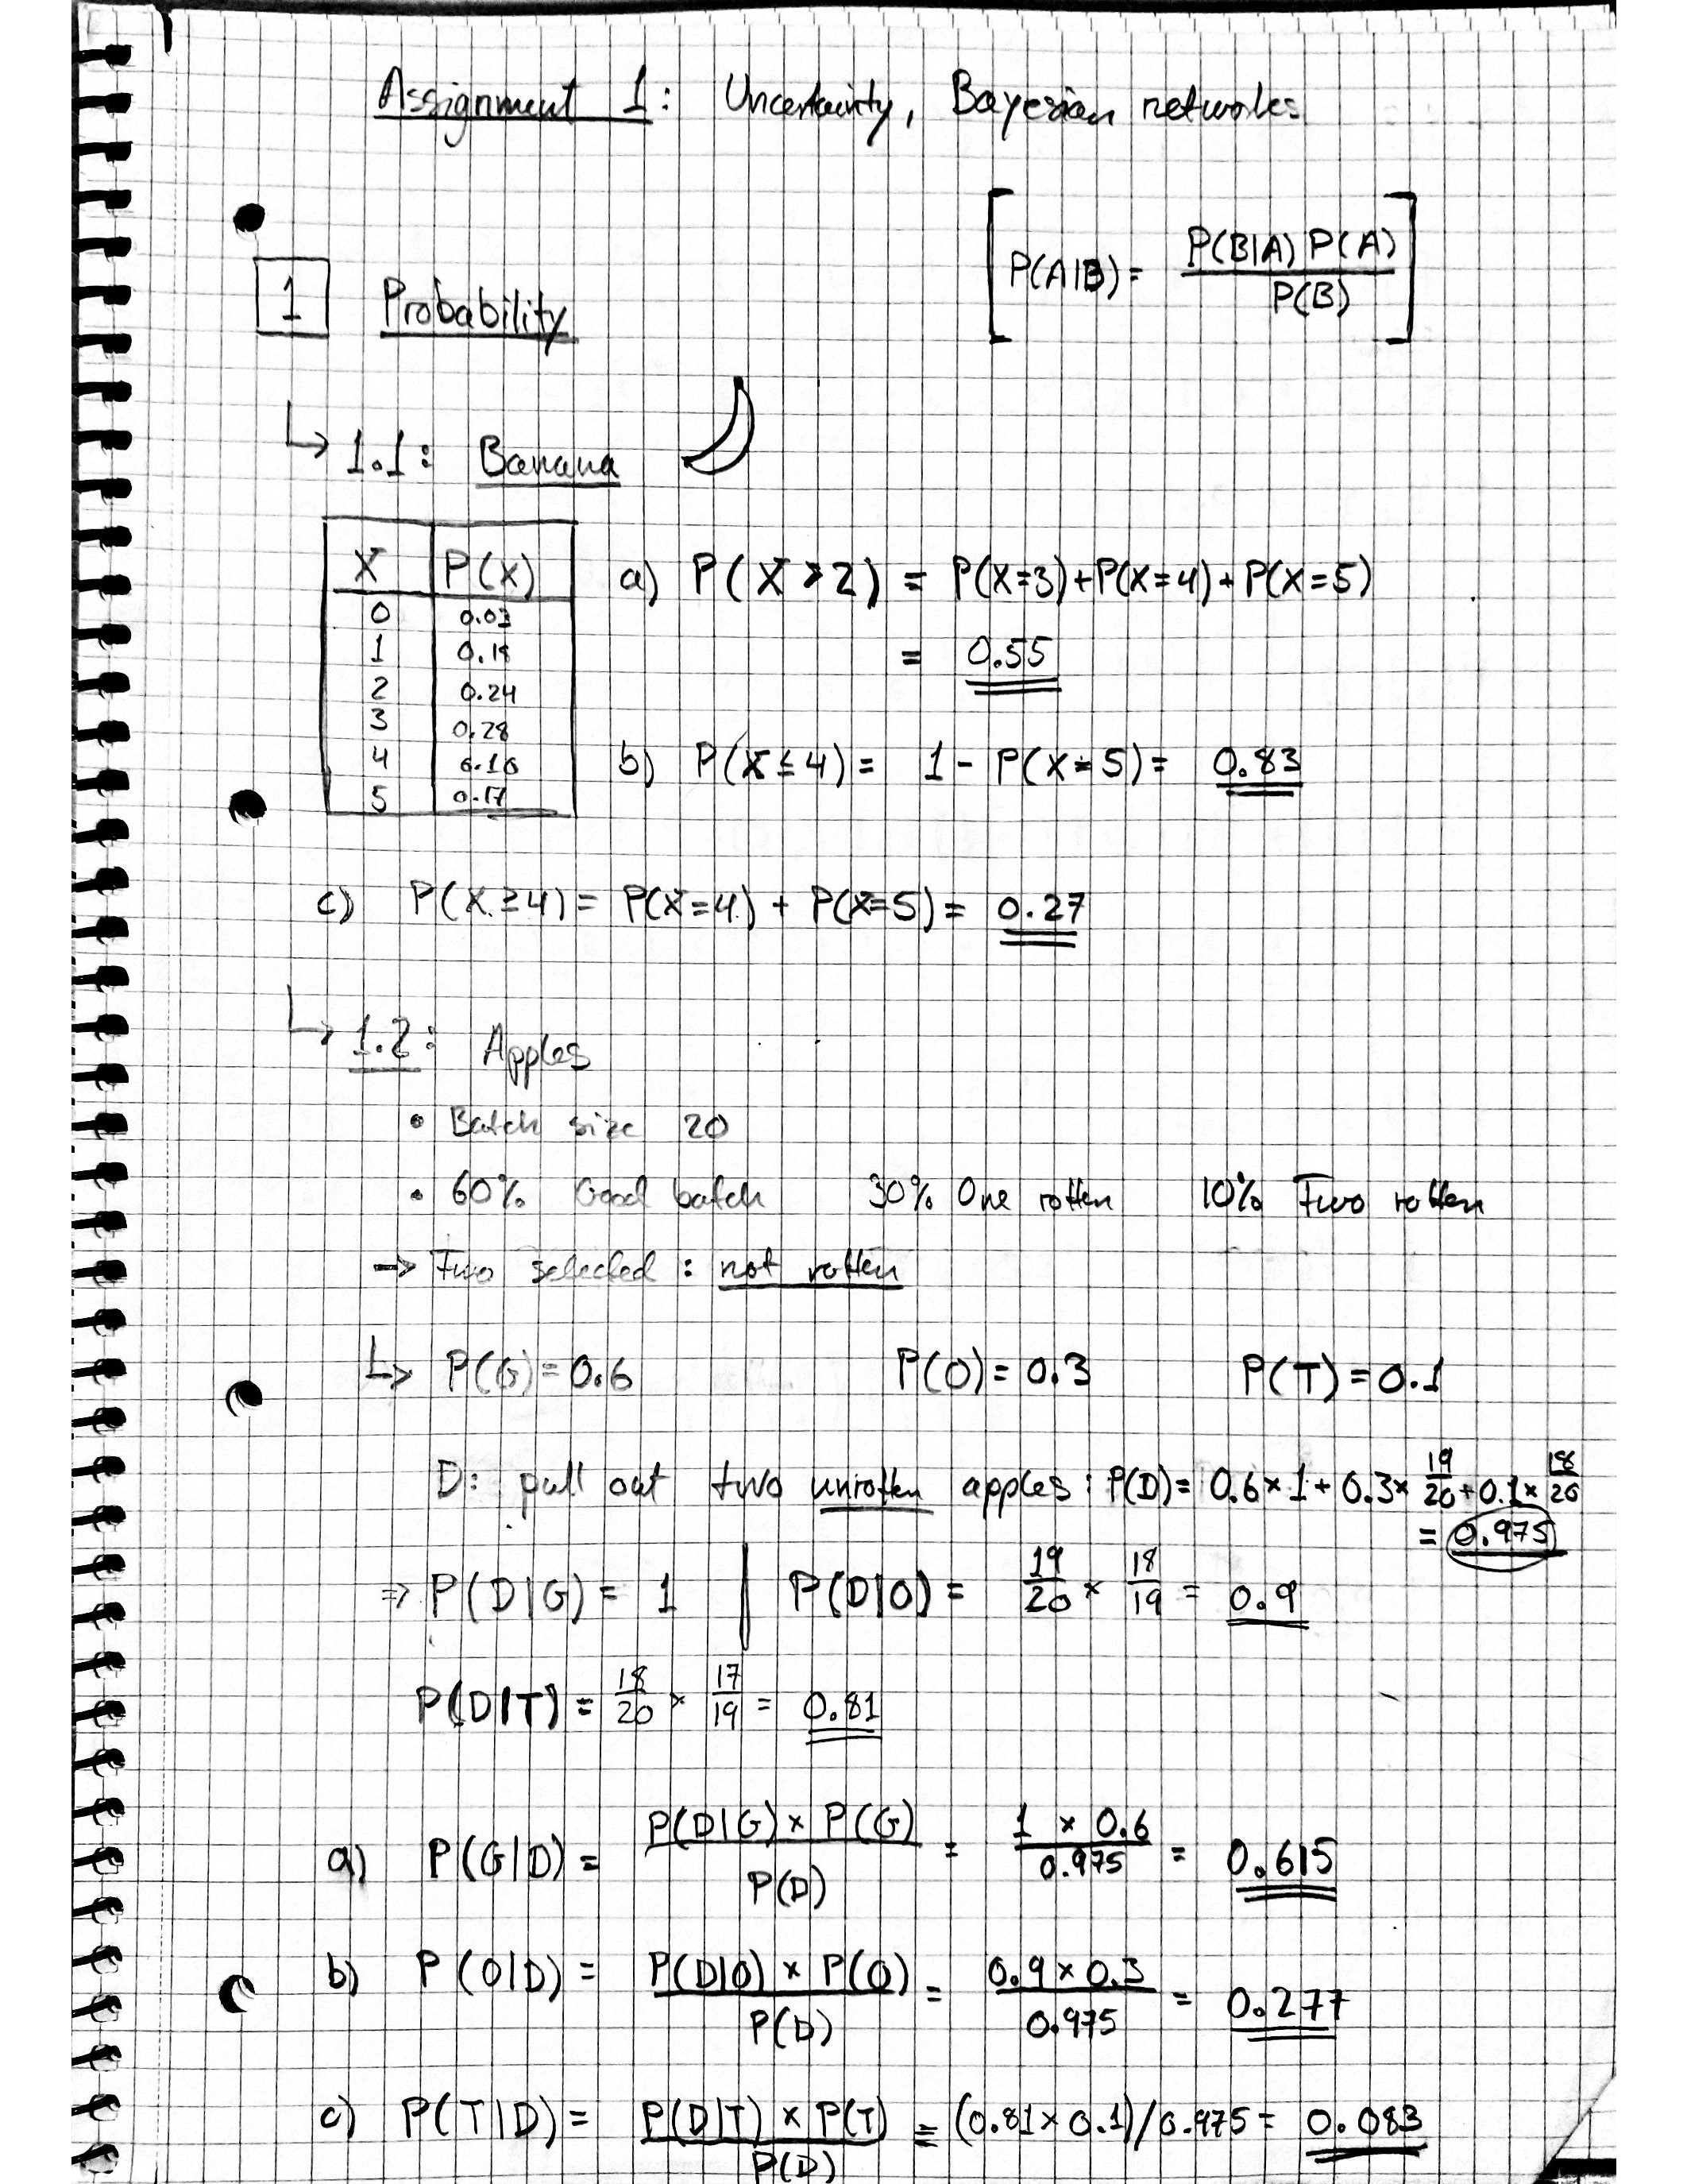 Assignment 1: Uncertainity, Bayesian networks
[P(A|B) = P(B|A) P(A) / P(B)]
1 Probability
↳ 1.1: Banana
X P(X)
0 0.03
1 0.18
2 0.24
3 0.28
4 0.10
5 0.17
a) P(X > 2) = P(X=3) + P(X=4) + P(X=5)
= 0.55
b) P(X ≤ 4) = 1 - P(X=5) = 0.83
c) P(X ≥ 4) = P(X=4) + P(X=5) = 0.27
↳ 1.2: Apples
• Batch size 20
• 60% Good batch 30% One rotten 10% Two rotten
→ Two selected: not rotten
↳ P(G) = 0.6 P(O) = 0.3 P(T) = 0.1
D: pull out two unrotten apples: P(D) = 0.6 × 1 + 0.3 × 19/20 + 0.1 × 18/20
= 0.975
⇒ P(D|G) = 1 | P(D|O) = 19/20 × 18/19 = 0.9
P(D|T) = 18/20 × 17/19 = 0.81
a) P(G|D) = P(D|G) × P(G) / P(D) = 1 × 0.6 / 0.975 = 0.615
b) P(O|D) = P(D|O) × P(O) / P(D) = 0.9 × 0.3 / 0.975 = 0.277
c) P(T|D) = P(D|T) × P(T) / P(D) = (0.81 × 0.1) / 0.975 = 0.083